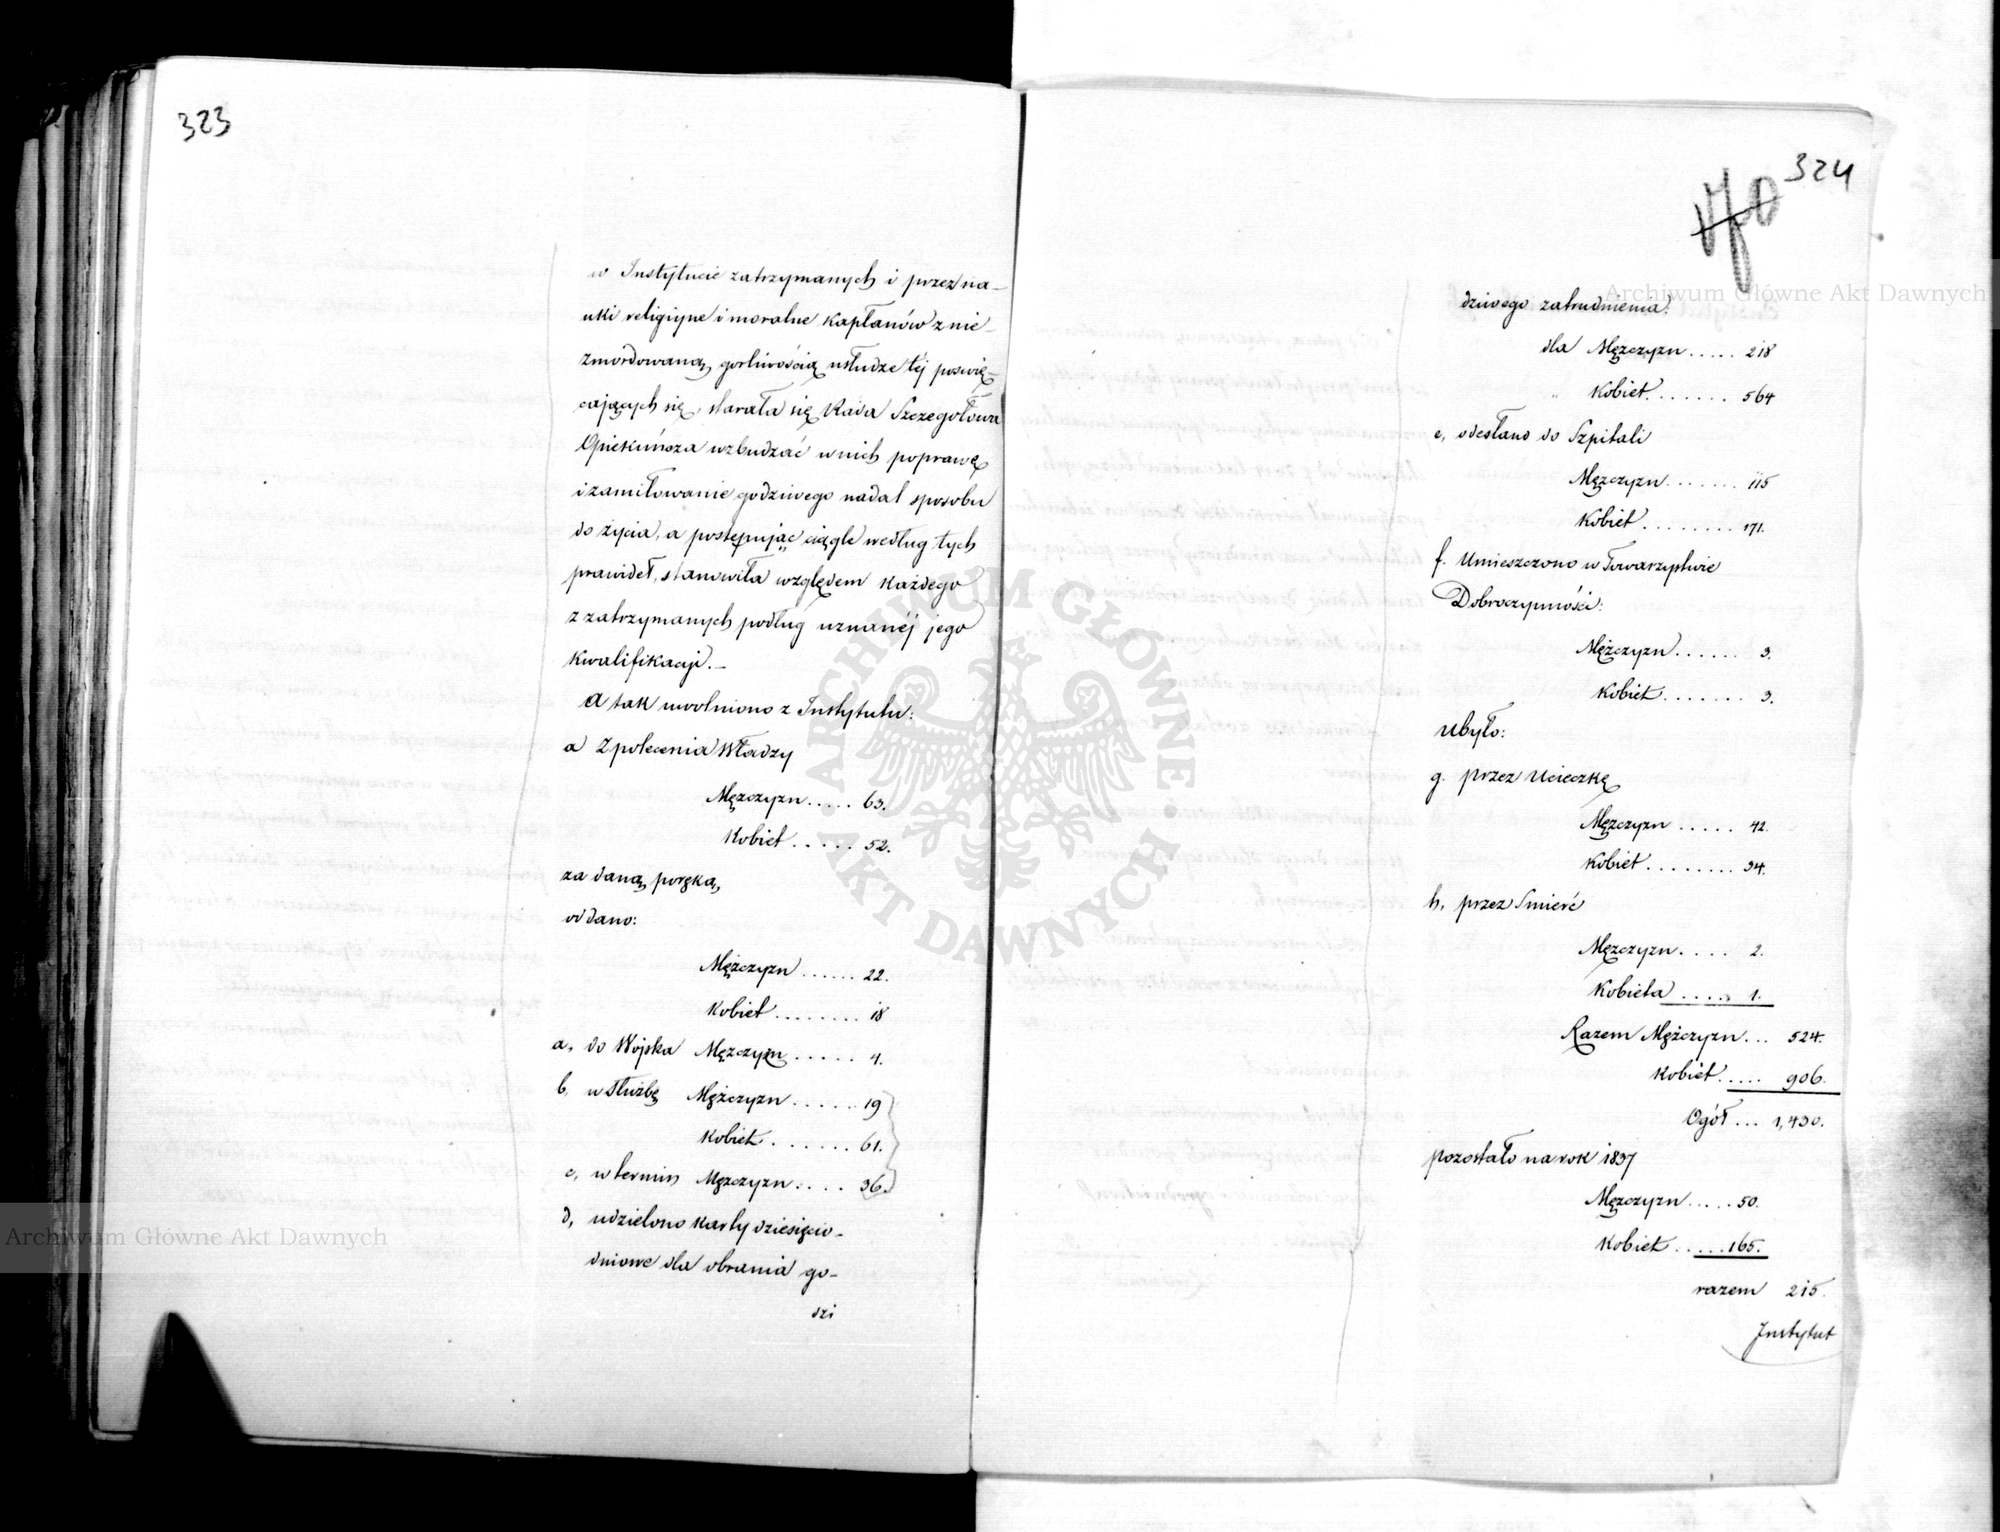 323
w Instytucie zatrzymanych i przez na-
uki religijne i moralne Kapłanów z nie-
zmordowaną gorliwością usłudze tej poswię-
cających się, starała się Rada Szczegółowa
Opiekuńcza wzbudzać w nich poprawę
i zamiłowanie godziwego nadal sposobu
do życia, a postępując ciągle według tych
prawideł, stanowiła względem każdego
z zatrzymanych podług uznanéj jego
Kwalifikacji.-
A tak uwolniono z Instytutu:
a Z polecenia Władzy
Mężczyzn ..... 63.
Kobiet ..... 52.
za daną poręką,
oddano:
Mężczyzn ...... 22.
Kobiet ........ 18
a, do Wojska Mężczyzn ..... 4.
b, w Służbę Mężczyzn ...... 19
Kobiet ....... 61.
c, w termin Mężczyzn ..... 36.
d, udzielono karty dziesięcio-
dniowe dla obrania go-
dzi
324
170
dziwego zatrudnienia:
dla Mężczyzn ..... 218
" Kobiet ........ 564
e, odesłano do Szpitali
Mężczyzn ....... 115
Kobiet ........ 171.
f. Umieszczono w Towarzystwie
Dobroczynności:
Mężczyzn ...... 3.
Kobiet ....... 3.
Ubyło:
g. przez Ucieczkę
Mężczyzn ..... 42.
Kobiet ........ 34.
h, przez Smierć
Mężczyzn ..... 2.
Kobieta ..... 1.
Razem Mężczyzn ... 524.
Kobiet ..... 906.
Ogół ... 1,430.
pozostało na rok 1837
Mężczyzn ..... 50.
Kobiet ..... 165.
razem 215.
Instytut
Archiwum Główne Akt Dawnych
Archiwum Główne Akt Dawnych
ARCHIWUM GŁÓWNE · AKT DAWNYCH ·